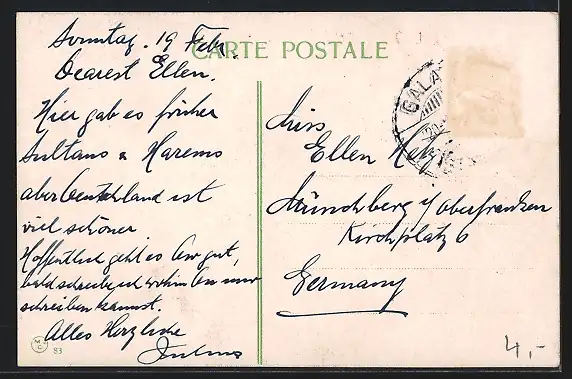 Sonntag. 19 Febr.
CARTE POSTALE
Dearest Ellen.
Hier gab es früher
Sultans & Harems
aber Deutschland ist
viel schöner
Hoffentlich geht es Dir gut,
bald schreibe ich wohin Du mir
schreiben kannst.
Alles Herzliche
Julius
M C
83
GALA
Miss
Ellen
Münchberg i/ Oberfranken
Kirchplatz 6
Germany
4,-